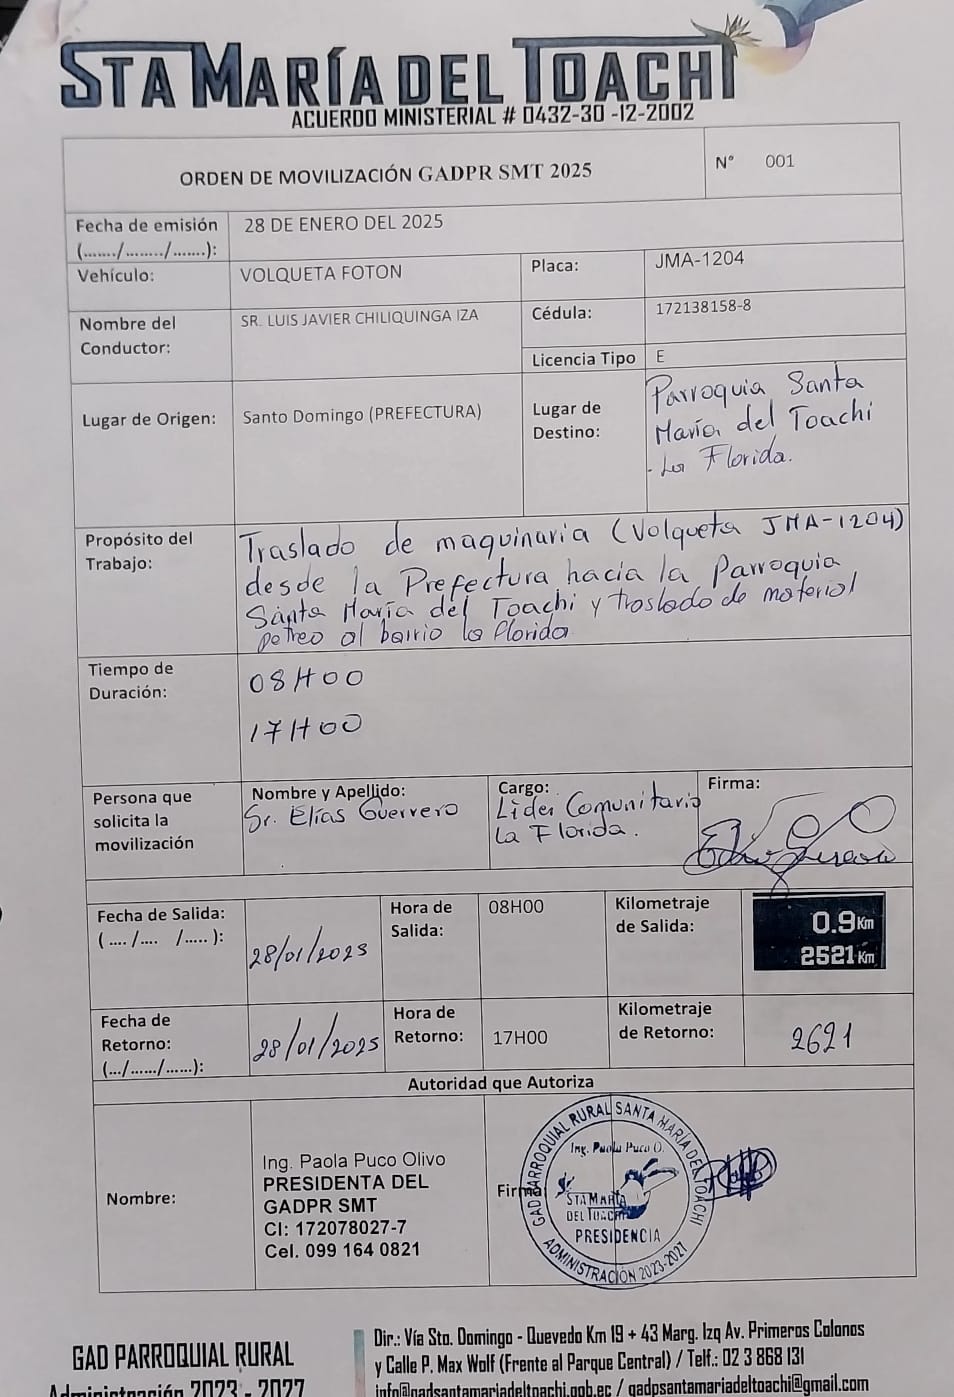 STA MARÍA DEL TOACHI
ACUERDO MINISTERIAL # 0432-30 -12-2002
ORDEN DE MOVILIZACIÓN GADPR SMT 2025
N° 001
Fecha de emisión
(......./......../.......):
28 DE ENERO DEL 2025
Vehículo:
VOLQUETA FOTON
Placa:
JMA-1204
Nombre del
Conductor:
SR. LUIS JAVIER CHILIQUINGA IZA
Cédula:
172138158-8
Licencia Tipo
E
Lugar de Origen:
Santo Domingo (PREFECTURA)
Lugar de
Destino:
Parroquia Santa
María del Toachi
- La Florida.
Propósito del
Trabajo:
Traslado de maquinaria (Volqueta JMA-1204)
desde la Prefectura hacia la Parroquia
Santa María del Toachi y traslado de material
petreo al barrio la florida
Tiempo de
Duración:
08H00
17H00
Persona que
solicita la
movilización
Nombre y Apellido:
Sr. Elías Guerrero
Cargo:
Lider Comunitario
La Florida.
Firma:
Fecha de Salida:
( .... /.... /..... ):
28/01/2025
Hora de
Salida:
08H00
Kilometraje
de Salida:
0.9 Km
2521 Km
Fecha de
Retorno:
(.../....../......):
28/01/2025
Hora de
Retorno:
17H00
Kilometraje
de Retorno:
2621
Autoridad que Autoriza
Nombre:
Ing. Paola Puco Olivo
PRESIDENTA DEL
GADPR SMT
CI: 172078027-7
Cel. 099 164 0821
Firma:
GAD PARROQUIAL RURAL SANTA MARÍA DEL TOACHI
Ing. Paola Puco O.
STA MARÍA
DEL TOACHI
PRESIDENCIA
ADMINISTRACIÓN 2023-2027
GAD PARROQUIAL RURAL
Administración 2023 - 2027
Dir.: Vía Sto. Domingo - Quevedo Km 19 + 43 Marg. Izq Av. Primeros Colonos
y Calle P. Max Wolf (Frente al Parque Central) / Telf.: 02 3 868 131
info@gadsantamariadeltoachi.gob.ec / gadpsantamariadeltoachi@gmail.com